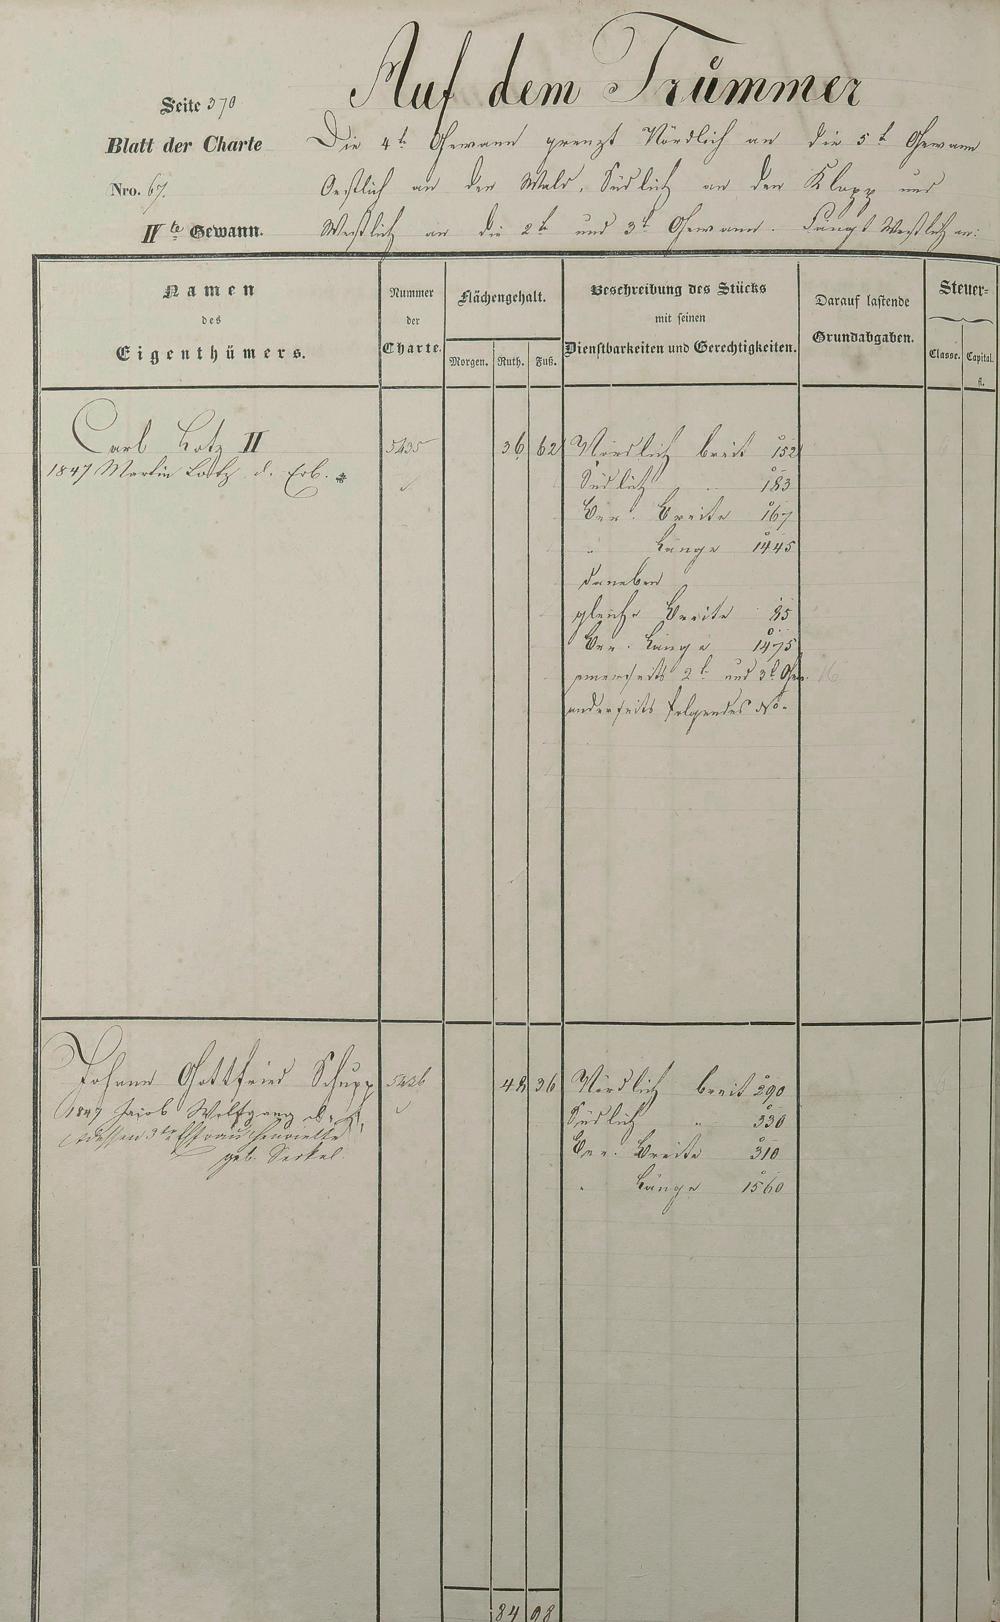 Auf dem Trümmer
Seite 370
Blatt der Charte
Nro. 67.
IVte Gewann.
Die 4te Gewann grenzt Nördlich an die 5te Gewann
Oestlich an den Wald, Südlich an den Klapp und
Westlich an die 2te und 3te Gewann. Fängt Westlich an:
Namen
des
Eigenthümers.
Nummer
der
Charte.
Flächengehalt.
Morgen. Ruth. Fuß.
Beschreibung des Stücks
mit seinen
Dienstbarkeiten und Gerechtigkeiten.
Darauf lastende
Grundabgaben.
Steuer-
Classe. Capital.
fl.
Carl Lotz II 5435 36 62 Nördlich breit 152
1847 Martin Lotz d. Erb. Südlich " 183
Ver. Breite 167
" Länge 1445
daneben
gleiche Breite 85
Ver. Länge 1475
einerseits 2te und 3te Gew.
anderseits folgendes No.
Johann Gottfried Schupp 5436 48 36 Nördlich breit 290
1847 Jacob Wolfgang Südlich " 330
dessen 3te Ehefrau Henriette Ver. Breite 310
geb. Serkel. " Länge 1560
84 98